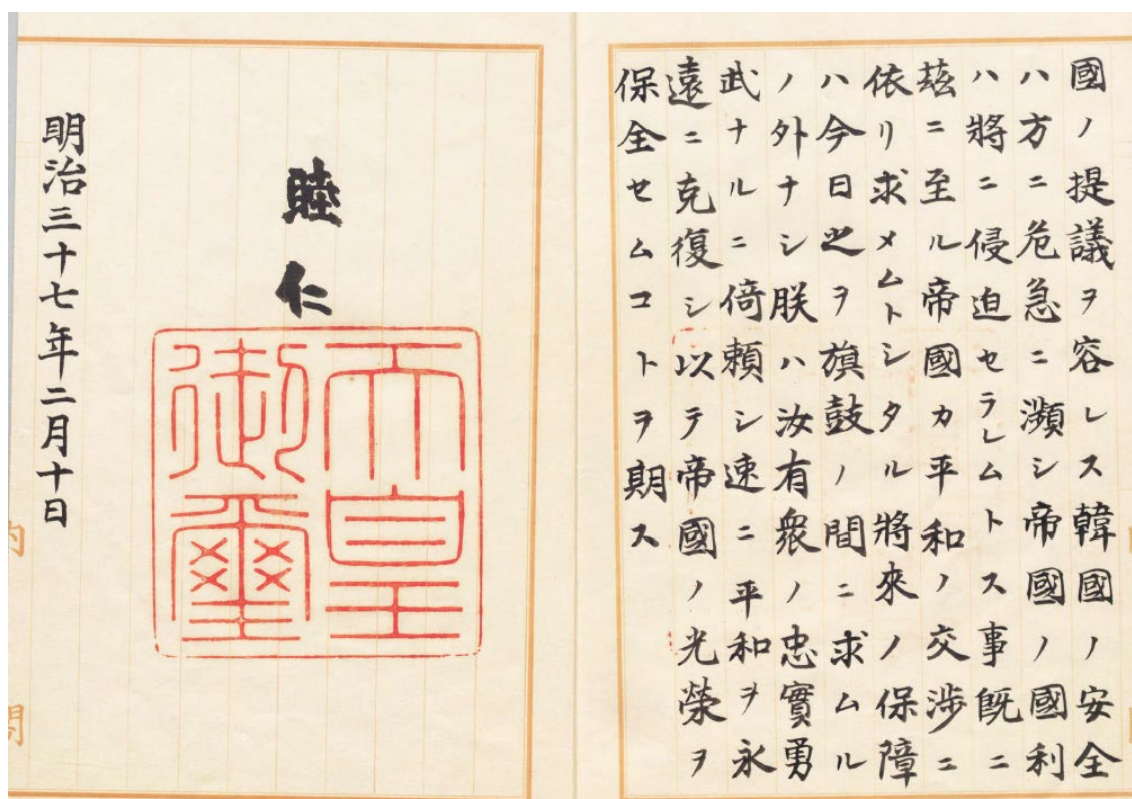 國ノ提議ヲ容レス韓國ノ安全
ハ方ニ危急ニ瀕シ帝國ノ國利
ハ將ニ侵迫セラレムトス事既ニ
茲ニ至ル帝國カ平和ノ交渉ニ
依リ求メムトシタル將來ノ保障
ハ今日之ヲ旗鼓ノ間ニ求ムル
ノ外ナシ朕ハ汝有衆ノ忠實勇
武ナルニ倚頼シ速ニ平和ヲ永
遠ニ克復シ以テ帝國ノ光榮ヲ
保全セムコトヲ期ス
睦仁
天皇
御璽
明治三十七年二月十日
内閣